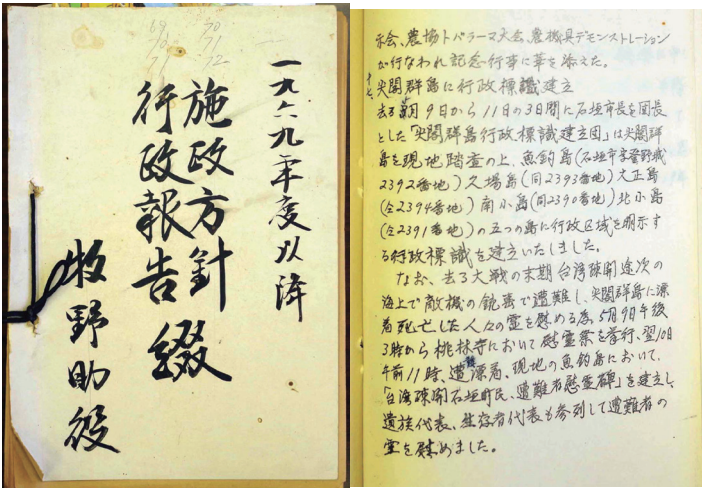 一九六九年度以降
施政方針
行政報告
綴
牧野助役
69 70
70 71
71 72
示会、農協トバラーマ大会、農機具デモンストレーション
が行なわれ記念行事に華を添えた。
十七、
尖閣群島に行政標識建立
去る 月9日から11日の3日間に石垣市長を団長
とした「尖閣群島行政標識建立団」は尖閣群
島を現地踏査の上、魚釣島(石垣市字登野城
2392番地)久場島(同2393番地)大正島
(仝2394番地)南小島(同2390番地)北小島
(仝2391番地)の五つの島に行政区域を明示す
る行政標識を建立いたしました。
なお、去る大戦の末期台湾疎開途次の
海上で敵機の銃畵で遭難し、尖閣群島に漂
着死亡した人々の霊を慰める為、5月9日午後
3時から桃林寺において慰霊祭を挙行、翌10日
午前11時、遭 漂着、現地の魚釣島において、
「台湾疎開石垣町民、遭難者慰霊碑」を建立し、
遺族代表、生存者代表も参列して遭難者の
霊を慰めました。